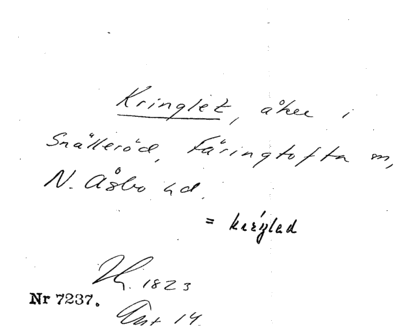 Kringlet, åker i
Snälleröd, Färingtofta sn,
N. Åsbo hd.
=
1823
Nr 7237.
14.